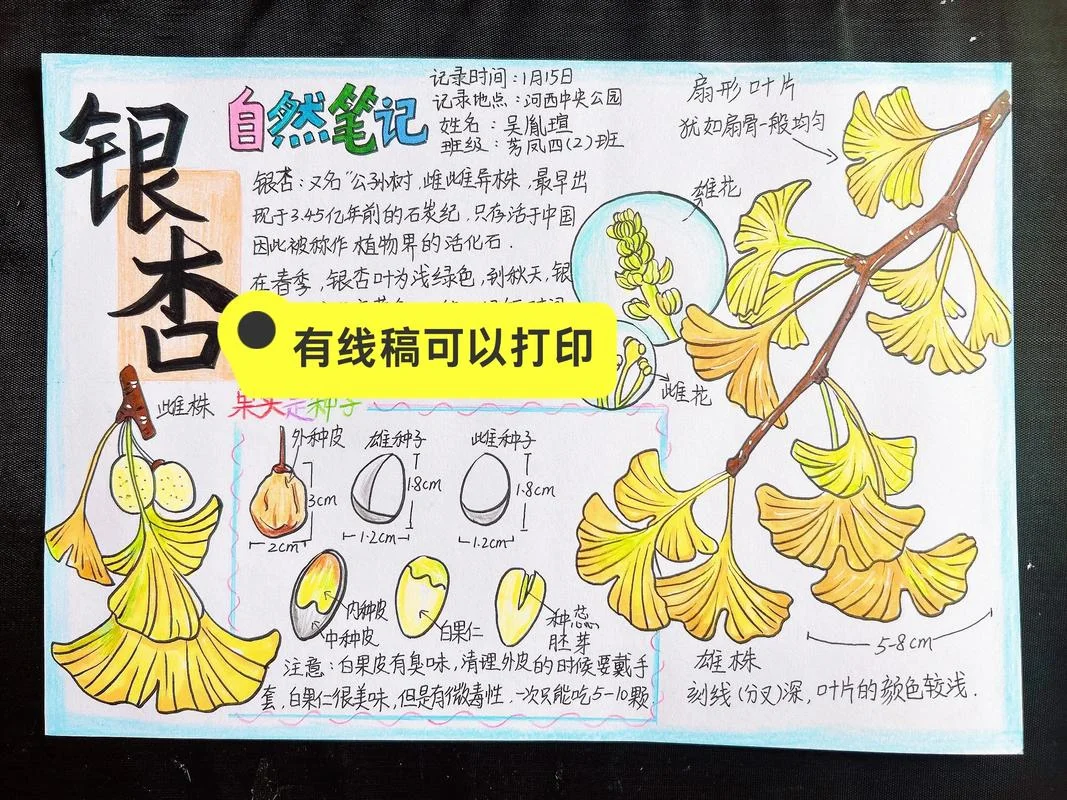 银杏
自然笔记
记录时间：1月15日
记录地点：河西中央公园
姓名：吴胤瑄
班级：芳凤四(2)班
扇形叶片
犹如扇骨一般均匀
银杏：又名“公孙树，雌雄异株，最早出
现于3.45亿年前的石炭纪，只存活于中国
因此被称作植物界的活化石．
在春季，银杏叶为浅绿色，到秋天，银
雄花
有线稿可以打印
雌花
雌株
种子
外种皮
雄种子
雌种子
3cm
1.8cm
1.8cm
2cm
1.2cm
1.2cm
内种皮
中种皮
白果仁
种蕊
胚芽
注意：白果皮有臭味，清理外皮的时候要戴手
套，白果仁很美味，但是有微毒性．一次只能吃5-10颗
5-8cm
雄株
刻线(分叉)深，叶片的颜色较浅．